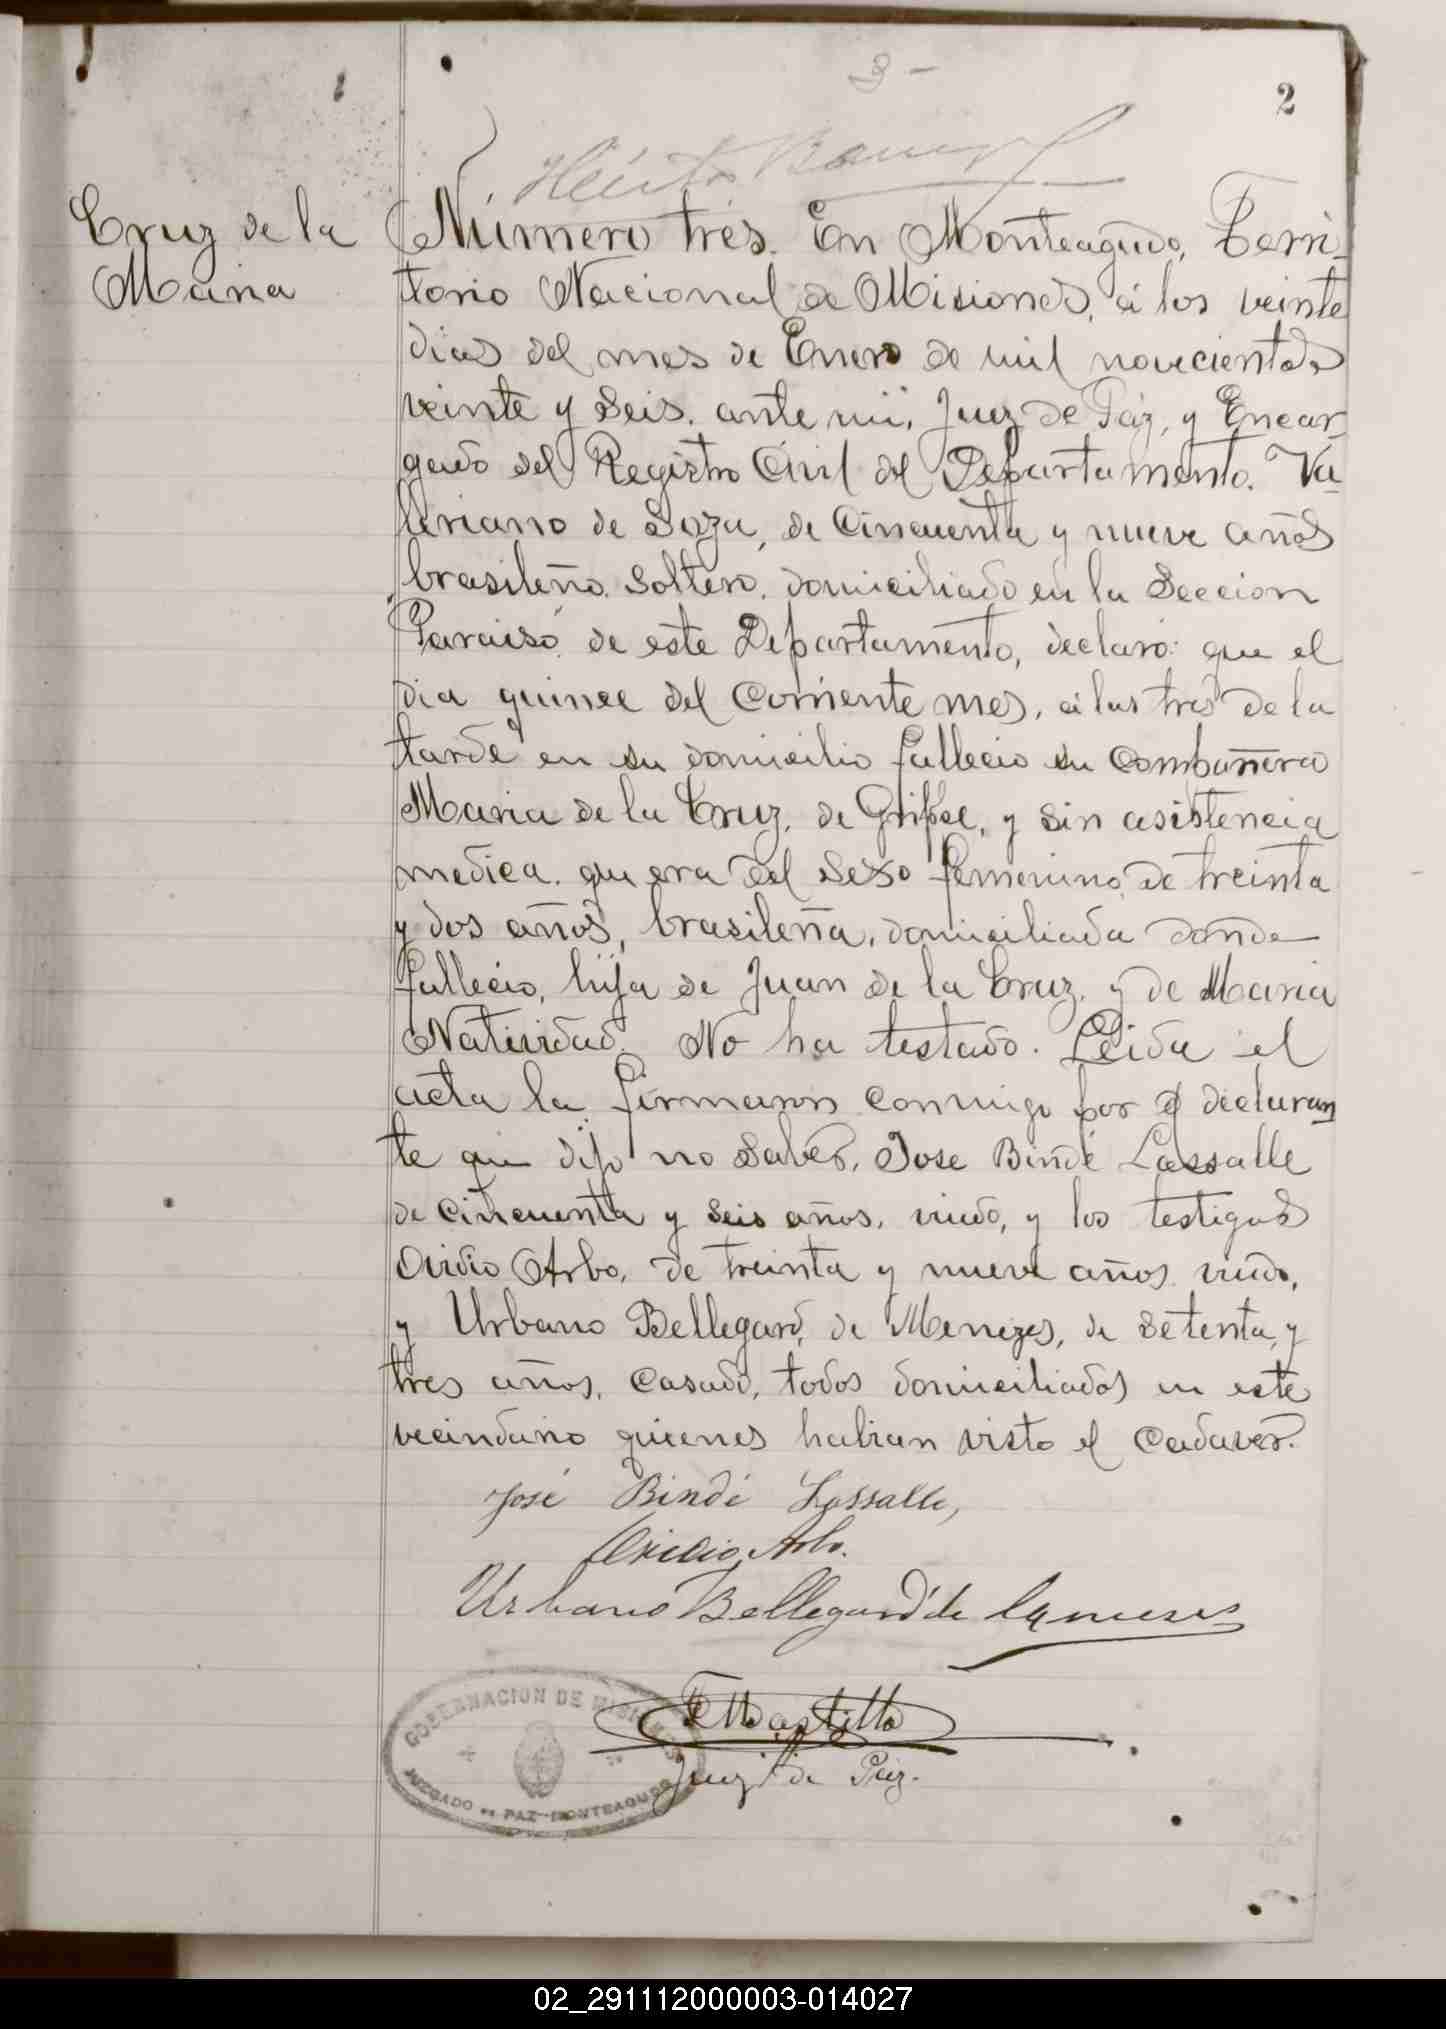 3 -
2
Cruz de la
Maria
Número trés. En Monteagudo, Terri-
torio Nacional de Misiones, á los veinte
dias del mes de Enero de mil novecientos
veinte y seis. ante mi, Juez de Páz, y Encar-
gado del Registro Civil del Departamento. Va-
leriano de Soza, de Cincuenta y nueve años
brasileño. Soltero, domiciliado en la Seccion
Paraiso de este Departamento, declaró: que el
dia quince del corriente mes, á las tres de la
tarde en su domicilio fallecio su compañera
Maria de la Cruz, de Grippe, y sin asistencia
medica. que era del sexo femenino, de treinta
y dos años, brasileña, domiciliada donde
fallecio, hija de Juan de la Cruz, y de Maria
Natividad. No ha testado. Leida el
acta la firmaron conmigo por el declaran
te qui dijo no saber, Jose Bindé Lassalle
de cincuenta y seis años, viudo, y los testigos
Ovidio Arbo, de treinta y nueve años viudo,
y Urbano Bellegard, de Menezes, de setenta, y
tres años, casado, todos domiciliados en este
vecindario quienes habian visto el cadaver.
José Bindé Lassalle,
Ovidio Arbo.
Urbano Bellegard de
Juez de Páz.
GOBERNACION DE MISIONES
JUZGADO DE PAZ MONTEAGUDO
02_291112000003-014027